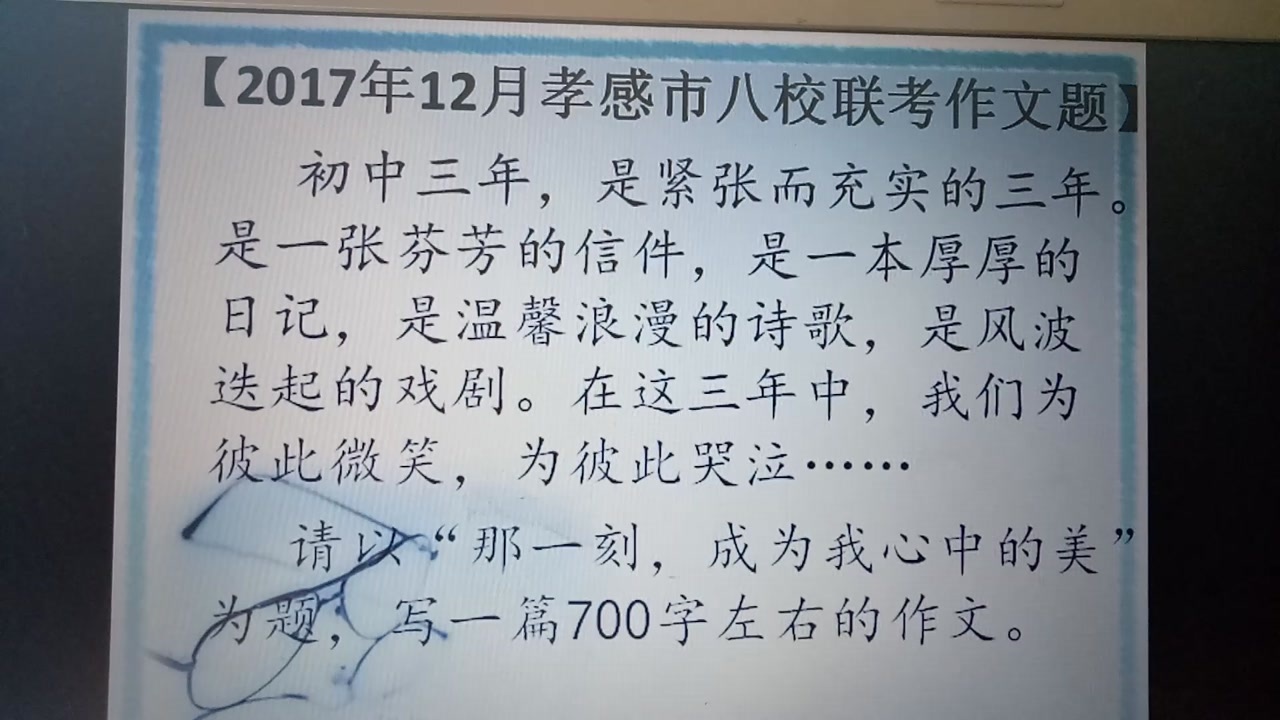 【2017年12月孝感市八校联考作文题】
初中三年，是紧张而充实的三年。
是一张芬芳的信件，是一本厚厚的
日记，是温馨浪漫的诗歌，是风波
迭起的戏剧。在这三年中，我们为
彼此微笑，为彼此哭泣……
请以“那一刻，成为我心中的美”
为题，写一篇700字左右的作文。